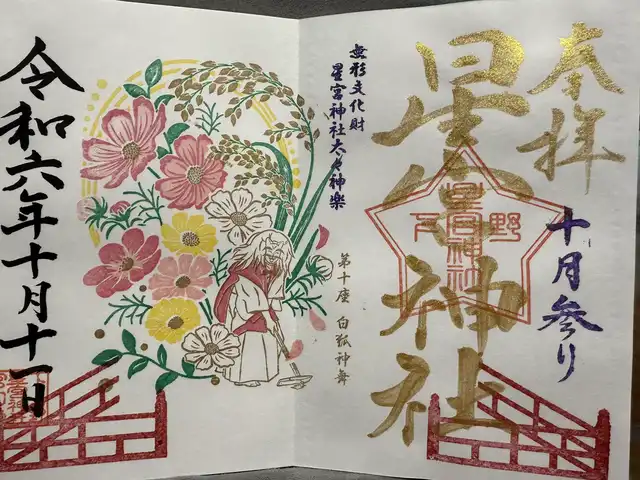 奉拝
星宮神社
下野
星宮神社
十月参り
無形文化財
星宮神社太々神楽
第十座 白狐神舞
令和六年十月十一日